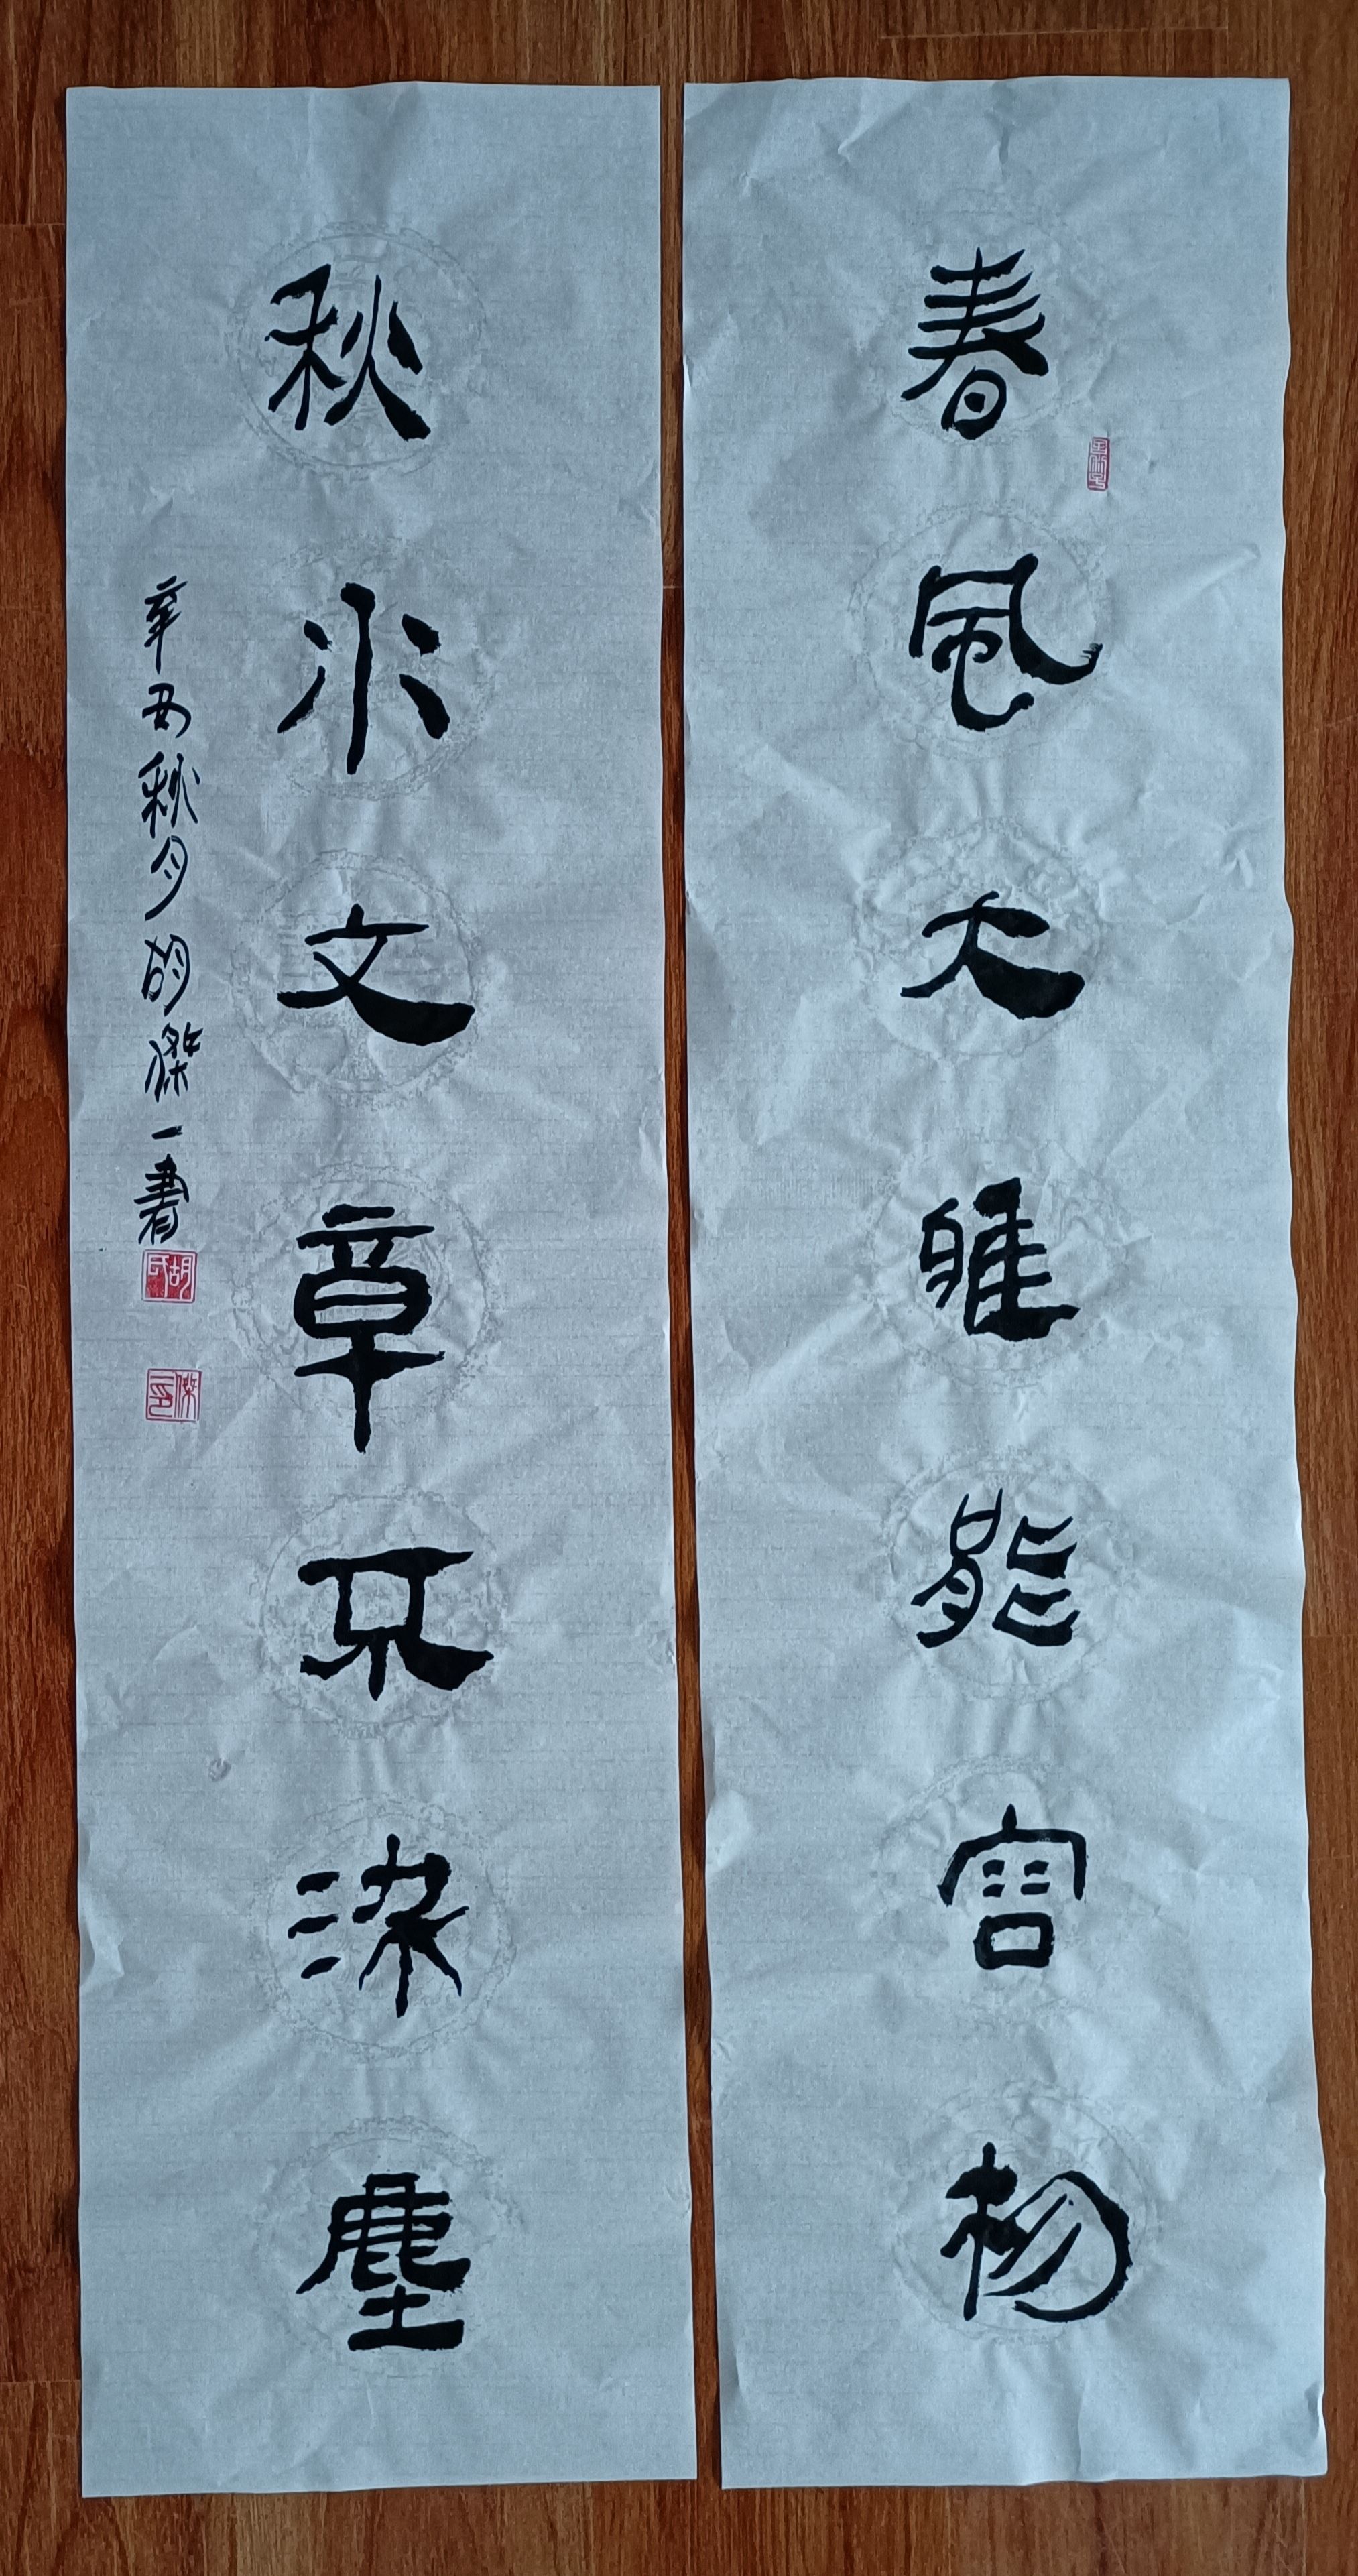 春風大雅能容物
秋水文章不染塵
辛丑秋月胡傑一書
胡氏
傑印